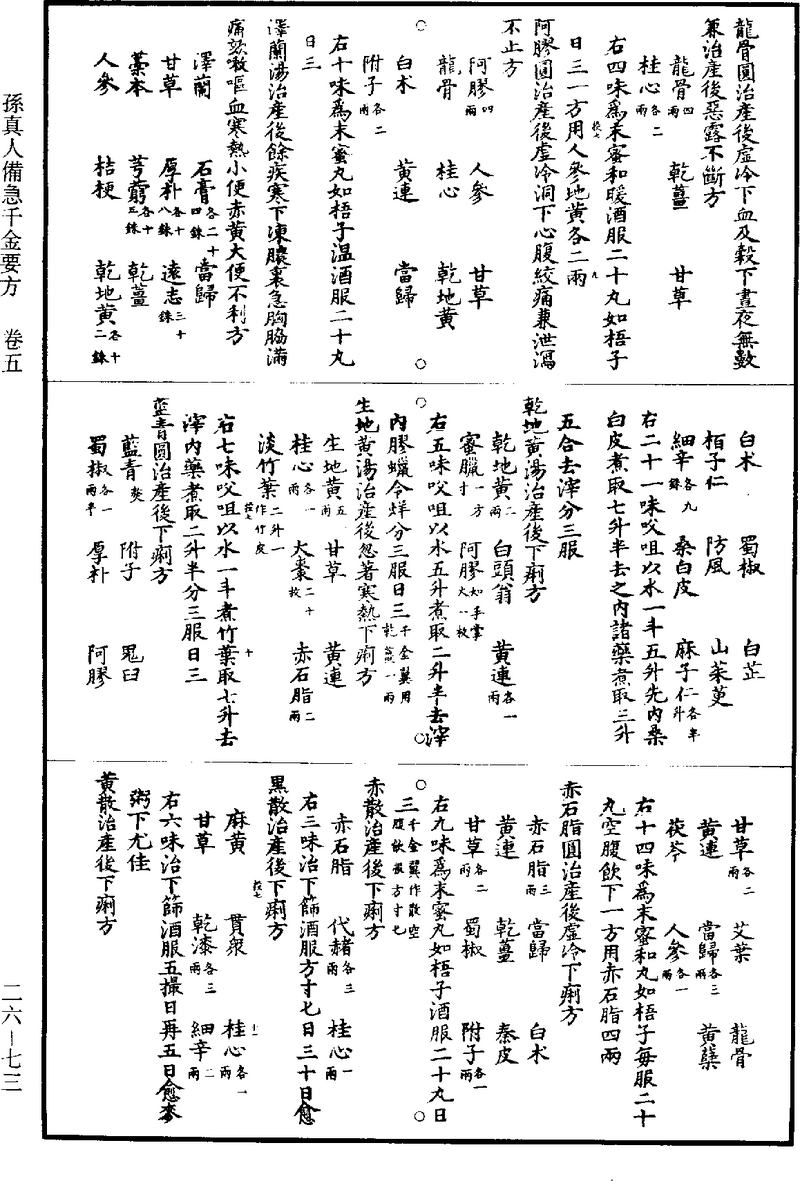 龍骨圓治產後虛冷下血及穀下晝夜無數
兼治產後惡露不斷方
龍骨四兩 乾薑 甘草
桂心各二兩
右四味爲末蜜和暖酒服二十丸如梧子
日三一方用人參地黃各二兩
阿膠圓治產後虛冷洞下心腹絞痛兼泄瀉
不止方
阿膠四兩 人參 甘草
龍骨 桂心 乾地黃
白朮 黃連 當歸
附子各二兩
右十味爲末蜜丸如梧子温酒服二十丸
日三
澤蘭湯治產後餘疾寒下凍膿裏急胸脇滿
痛欬嗽嘔血寒熱小便赤黃大便不利方
澤蘭 石膏各二十四銖 當歸
甘草 厚朴各十八銖 遠志三十銖
藁本 芎藭各十五銖 乾薑
人參 桔梗 乾地黃各十二銖
白朮 蜀椒 白芷
栢子仁 防風 山茱萸
細辛各九銖 桑白皮 麻子仁各半升
右二十一味㕮咀以水一斗五升先內桑
白皮煮取七升半去之內諸藥煮取三升
五合去滓分三服
乾地黃湯治產後下痢方
乾地黃二兩 白頭翁 黃連各一兩
蜜臘一方寸 阿膠如手掌大一枚
右五味㕮咀以水五升煮取二升半去滓
內膠蠟令烊分三服日三千金翼用乾薑一兩
生地黃湯治產後忽著寒熱下痢方
生地黃五兩 甘草 黃連
桂心各一兩 大棗二十枚 赤石脂二兩
淡竹葉二升一作竹皮
右七味㕮咀以水一斗煮竹葉取七升去
滓內藥煮取二升半分三服日三
藍青圓治產後下痢方
藍青熬 附子 鬼臼
蜀椒各一兩半 厚朴 阿膠
甘草各二兩 艾葉 龍骨
黃連 當歸各三兩 黃蘗
茯苓 人參各一兩
右十四味爲末蜜和丸如梧子每服二十
丸空腹飲下一方用赤石脂四兩
赤石脂圓治產後虛冷下痢方
赤石脂三兩 當歸 白朮
黃連 乾薑 秦皮
甘草各二兩 蜀椒 附子各一兩
右九味爲末蜜丸如梧子酒服二十九日
三千金翼作散空腹飲服方寸七
赤散治產後下痢方
赤石脂 代赭各三兩 桂心一兩
右三味治下篩酒服方寸七日三十日愈
黑散治產後下痢方
麻黃 貫衆 桂心各一兩
甘草 乾漆各三兩 細辛二兩
右六味治下篩酒服五撮日再五日愈麥
粥下尤佳
黃散治產後下痢方
孫真人備急千金要方 卷五
二六—七三